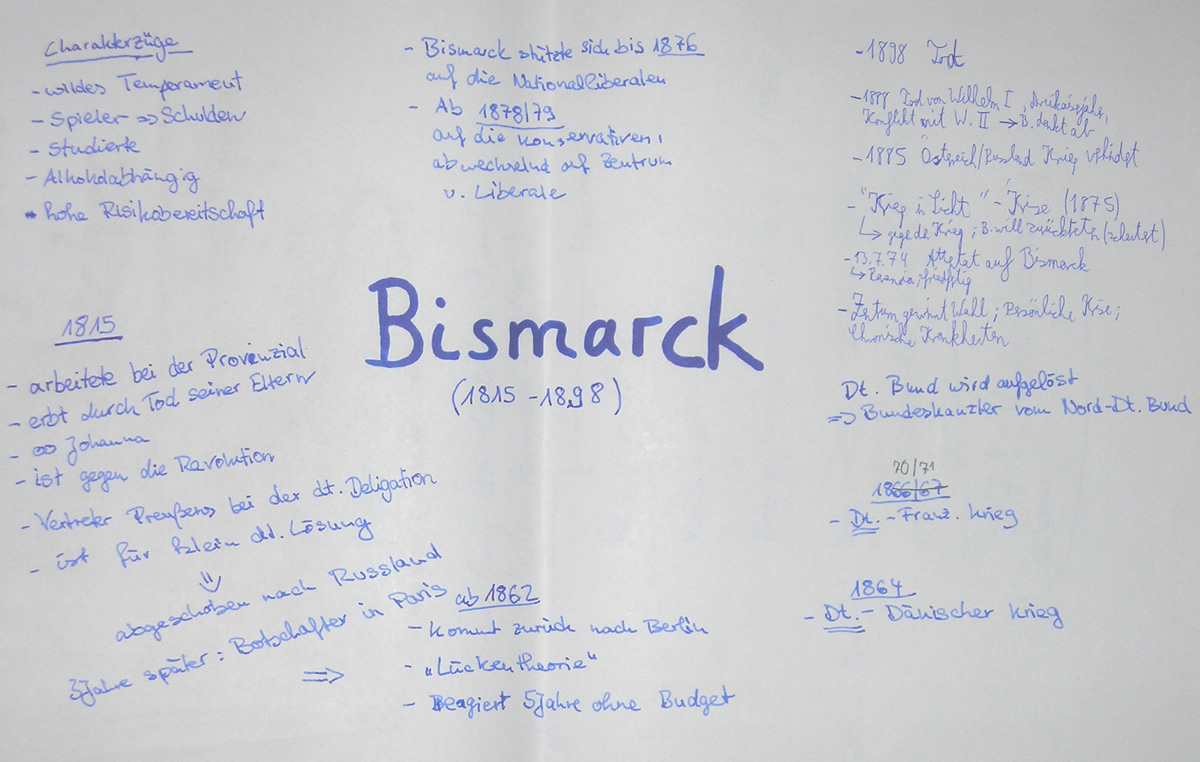 Charakterzüge
- wildes Temperament
- Spieler => Schulden
- Studierte
- Alkoholabhängig
- hohe Risikobereitschaft
- Bismarck stützte sich bis 1876
auf die Nationalliberalen
- Ab 1878/79
auf die Konservativen,
abwechselnd auf Zentrum
u. Liberale
- 1898 Tod
- 1888 Tod von Wilhelm I, Dreikaiserjahr,
Konflikt mit W. II → B. dankt ab
- 1885 Österreich/Russland Krieg
- "Krieg in Sicht" - Krise (1875)
↳ Krieg; B. will zurücktreten
- 13.7.74 Attetat auf Bismarck
↳
- Zentrum gewinnt Wahl; Persönliche Krise;
Chronische Krankheiten
Bismarck
(1815 - 1898)
1815
- arbeitete bei der Provinzial
- erbt durch Tod seiner Eltern
- ∞ Johanna
- ist gegen die Revolution
- Vertreter Preußens bei der dt. Deligation
- ist für klein dt. Lösung
⇓
abgeschoben nach Russland
3 Jahre später: Botschafter in Paris
=>
ab 1862
- kommt zurück nach Berlin
- „Lückentheorie“
- Reagiert 5 Jahre ohne Budget
Dt. Bund wird aufgelöst
=> Bundeskanzler vom Nord-Dt. Bund
70/71
1866/67
- Dt. - Franz. Krieg
1864
- Dt. - Dänischer Krieg